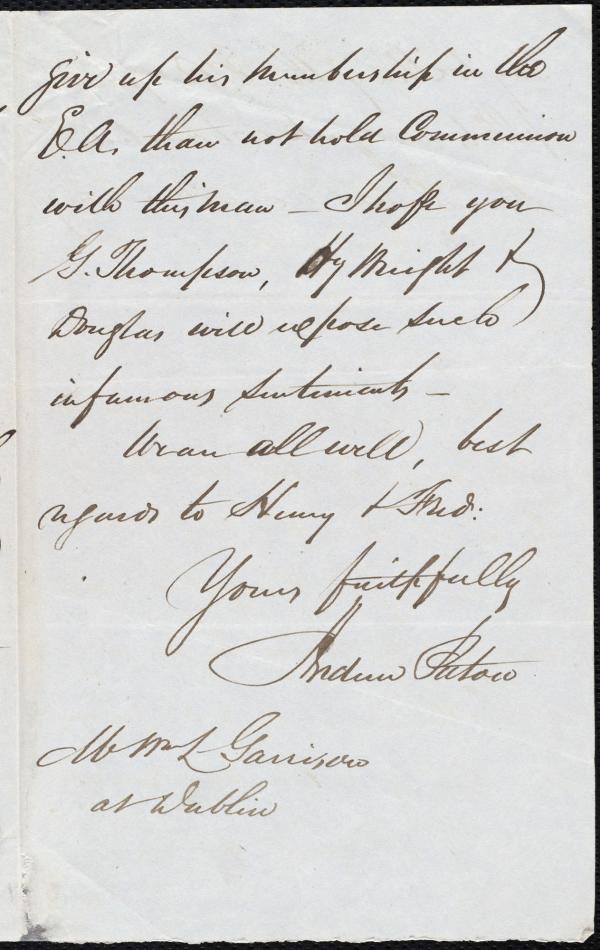 give up his membership in the
E.A. than not hold Communion
with this man – I hope you
G. Thompson, Hy Wright &
Douglas will expose such
infamous sentiments –
We are all well, best
regards to Henry & Fred:
Yours faithfully
Andrew Paton
Mr Wm L Garrison
at Dublin